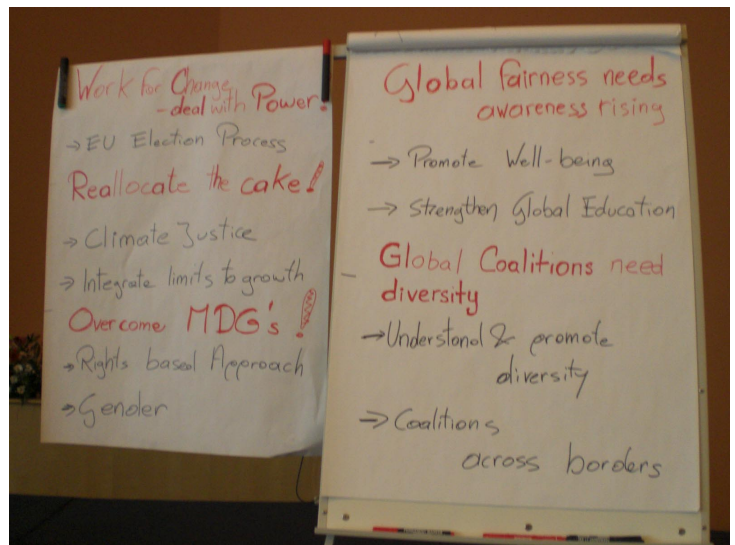 Work for Change
- deal with Power!
→ EU Election Process
Reallocate the cake!
→ Climate Justice
→ Integrate limits to growth
Overcome MDG's!
→ Rights based Approach
→ Gender
Global fairness needs
awareness rising
→ Promote Well-being
→ Strengthen Global Education
Global Coalitions need
diversity
→ Understand & promote
diversity
→ Coalitions
across borders